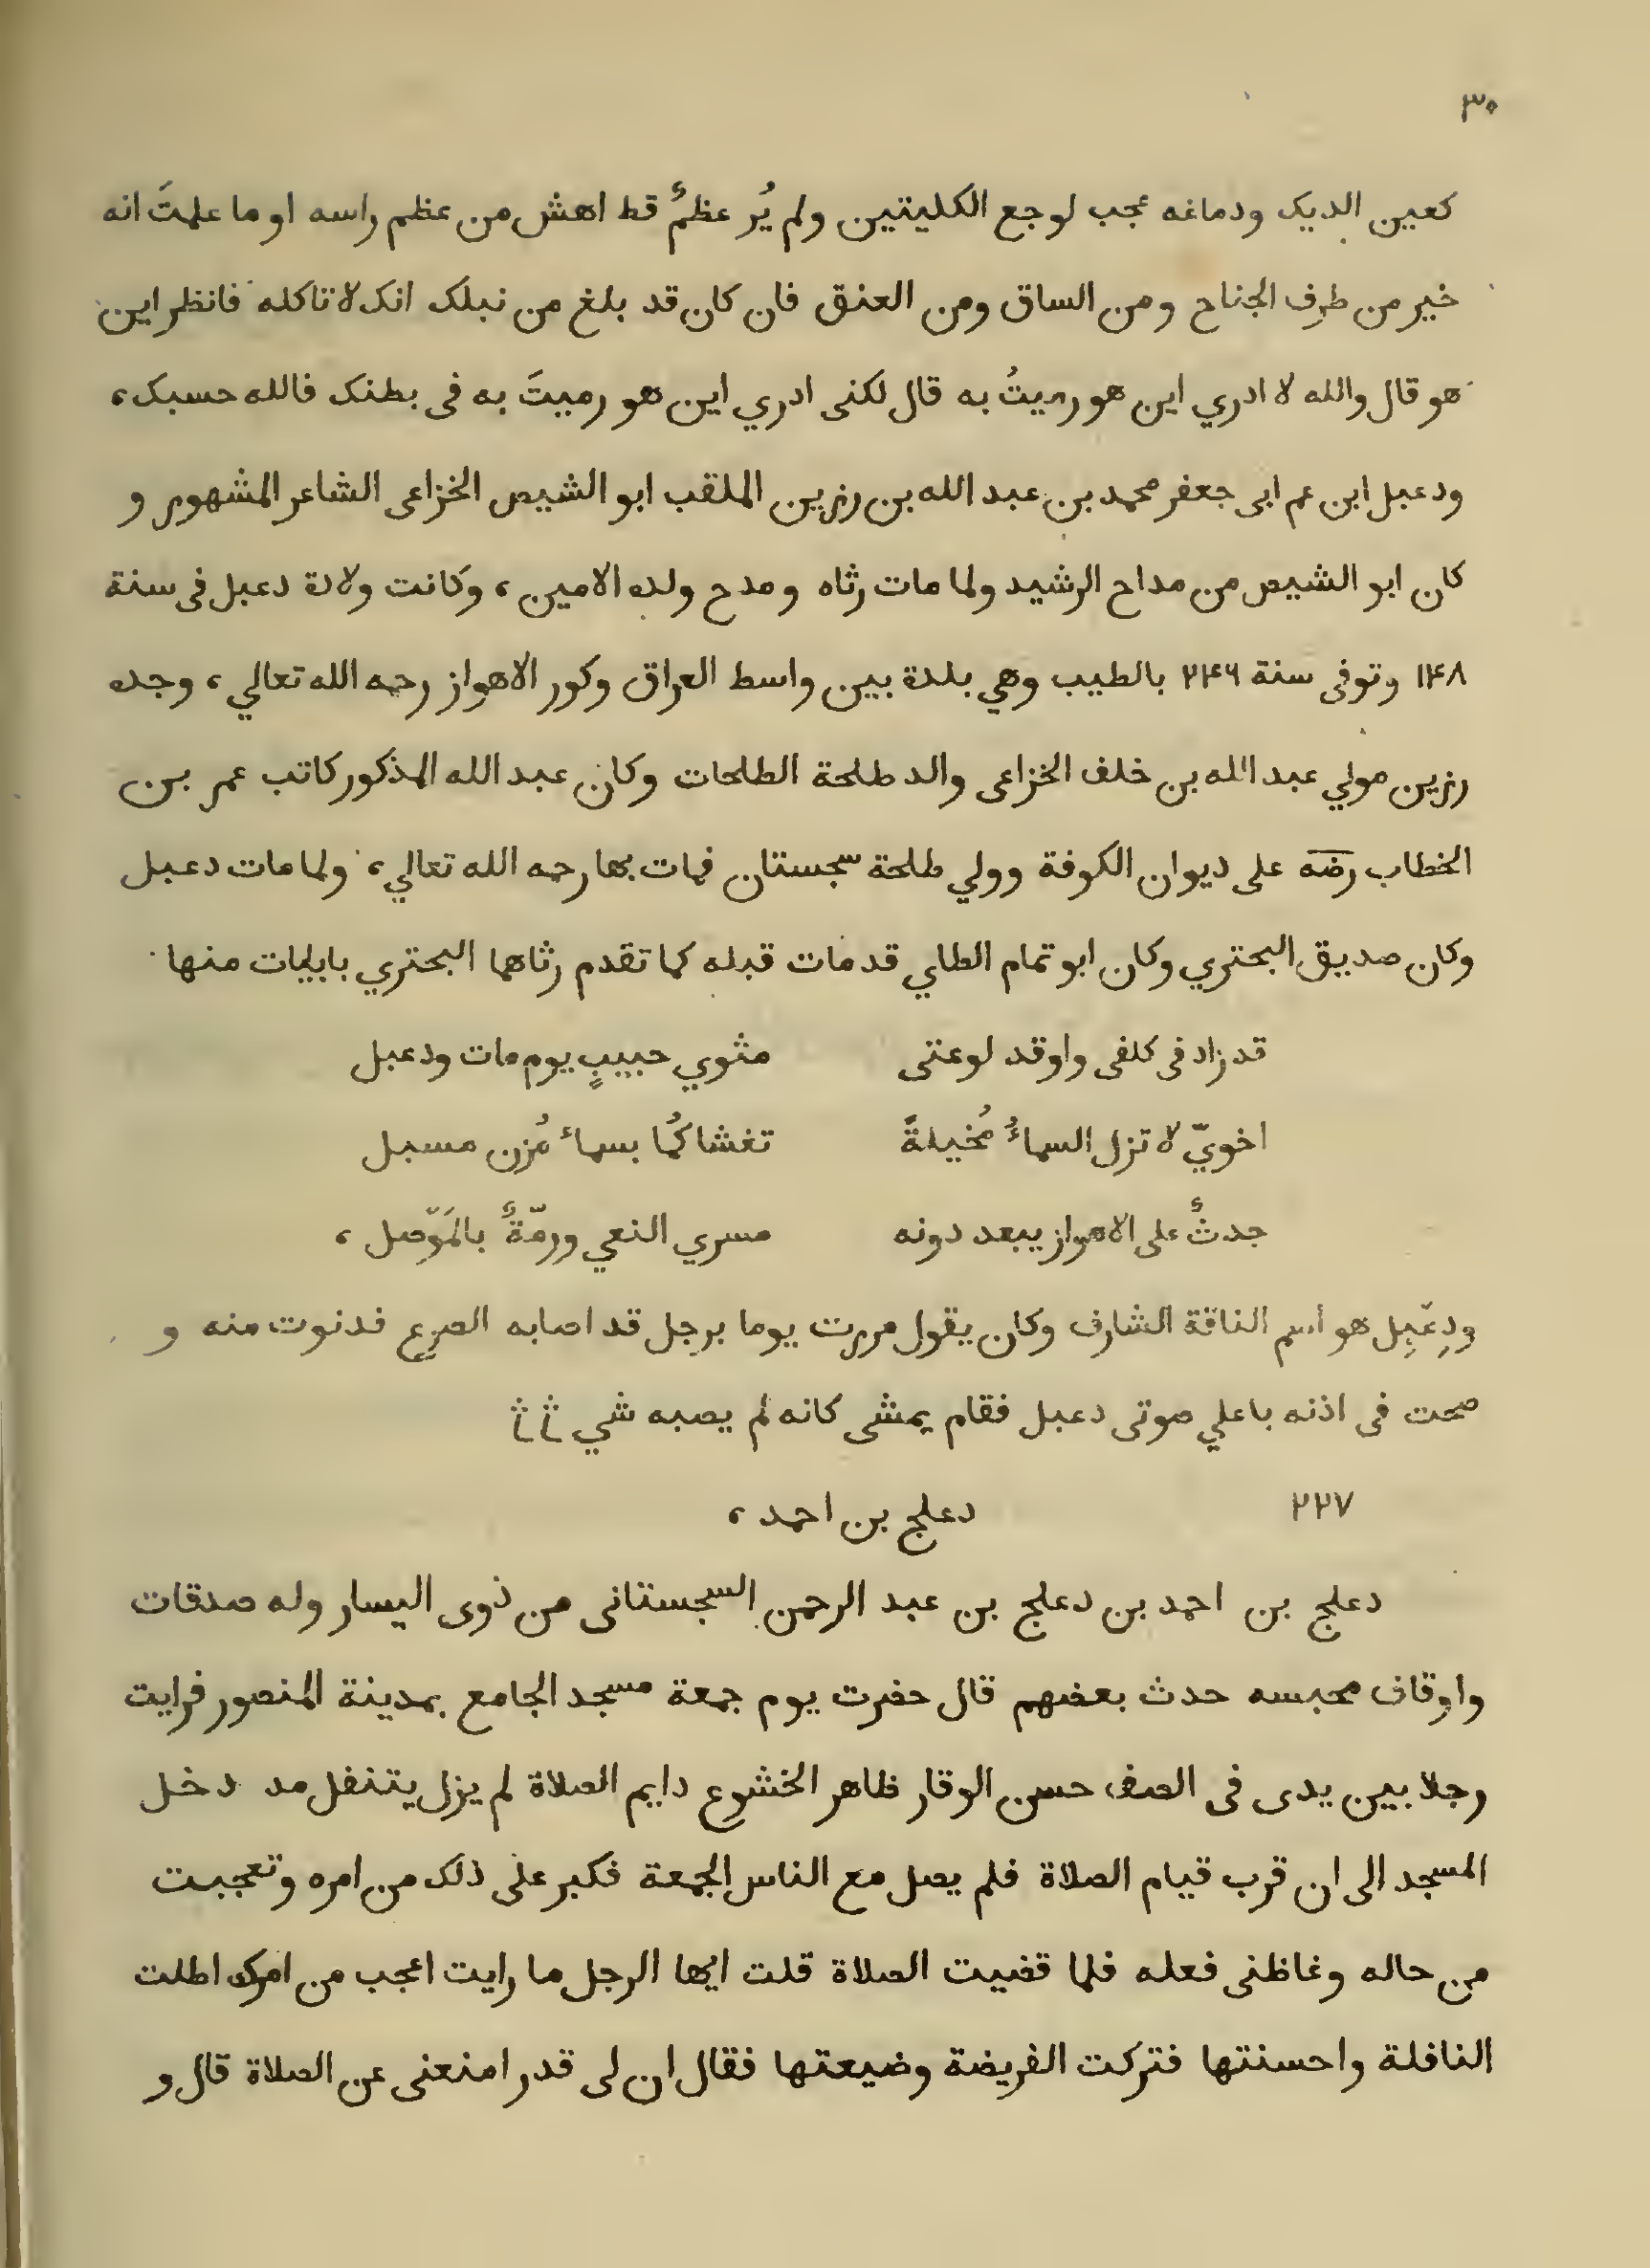 ٣٠
كعين الديك ودماغه عجب لوجع الكليتين ولم يُر عظمٌ قط اهش من عظم راسه او ما علمتَ انه
خير من طرف الجناح ومن الساق ومن العنق فان كان قد بلغ من نبلك انك لا تاكله فانظر اين
هو قال والله لا ادري اين هو رميتُ به قال لكنى ادري اين هو رميتَ به فى بطنك فالله حسبك،
ودعبل ابن عم ابى جعفر محمد بن عبد الله بن رزين الملقب ابو الشيص الخزاعى الشاعر المشهور و
كان ابو الشيص من مداح الرشيد ولما مات رثاه ومدح ولده الامين، وكانت ولادة دعبل فى سنة
١٤٨ وتوفى سنة ٢٤٦ بالطيب وهي بلدة بين واسط العراق وكور الاهواز رحمه الله تعالي، وجده
رزين مولي عبد الله بن خلف الخزاعى والد طلحة الطلحات وكان عبد الله المذكور كاتب عمر بن
الخطاب رضه على ديوان الكوفة وولي طلحة سجستان فمات بها رحمه الله تعالي، ولما مات دعبل
وكان صديق البحتري وكان ابو تمام الطاي قد مات قبله كما تقدم رثاهما البحتري بابيات منها
قد زاد فى كلفى واوقد لوعتى مثوي حبيبٍ يوم مات ودعبل
اخويّ لا تزل السماءُ مُخيلةً تغشاكُما بسماء مُزن مسبل
جدثٌ على الاهواز يبعد دونه مسري النعي ورمّةٌ بالمَوّصِل،
ودِعّبِل هو اسم الناقة الشارف وكان يقول مررت يوما برجل قد اصابه الصرع فدنوت منه و
صحت فى اذنه باعلي صوتى دعبل فقام يمشى كانه لم يصبه شي
٢٢٧ دعلج بن احمد،
دعلج بن احمد بن دعلج بن عبد الرحمن السجستانى من ذوى اليسار وله صدقات
واوقاف محبسه حدث بعضهم قال حضرت يوم جمعة مسجد الجامع بمدينة المنصور فرايت
رجلا بين يدى فى الصف حسن الوقار ظاهر الخشوع دايم الصلاة لم يزل يتنفل مد دخل
المسجد الى ان قرب قيام الصلاة فلم يصل مع الناس الجمعة فكبر على ذلك من امره وتعجبت
من حاله وغاظنى فعله فلما قضيت الصلاة قلت ايها الرجل ما رايت اعجب من امرك اطلت
النافلة واحسنتها فتركت الفريضة وضيعتها فقال ان لى قدرا منعنى عن الصلاة قال و